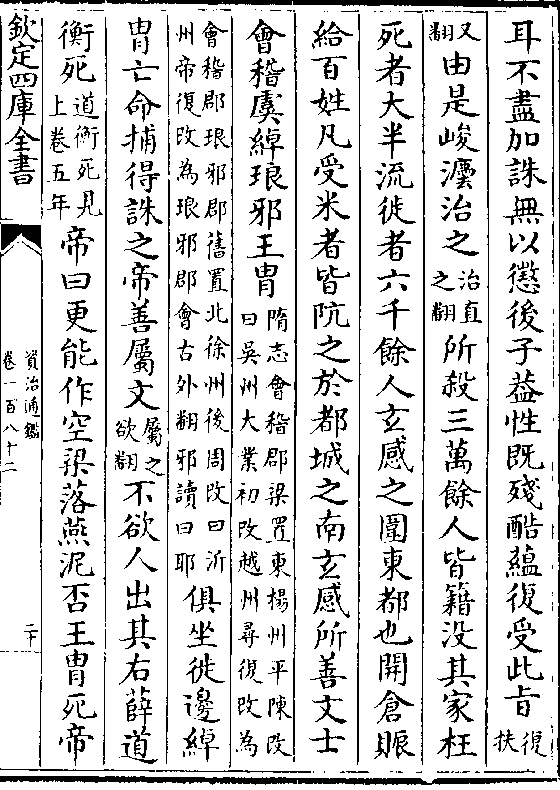 耳不盡加誅無以懲後子葢性既殘酷蘊復受此㫖復扶
又翻由是峻灋治之治直之翻所殺三萬餘人皆籍没其家枉
死者大半流徙者六千餘人玄感之圍東都也開倉賑
給百姓凡受米者皆阬之於都城之南玄感所善文士
會稽虞綽琅邪王胄隋志會稽郡梁置東楊州平陳改曰吳州大業初改越州尋復改為
會稽郡琅邪郡舊置北徐州後周改曰沂州帝復改為琅邪郡會古外翻邪讀曰耶俱坐徙邊綽
胄亡命捕得誅之帝善屬文屬之欲翻不欲人出其右薛道
衡死道衡死見上卷五年帝曰更能作空梁落燕泥否王胄死帝
欽定四庫全書
資治通鑑
卷一百八十二
二十